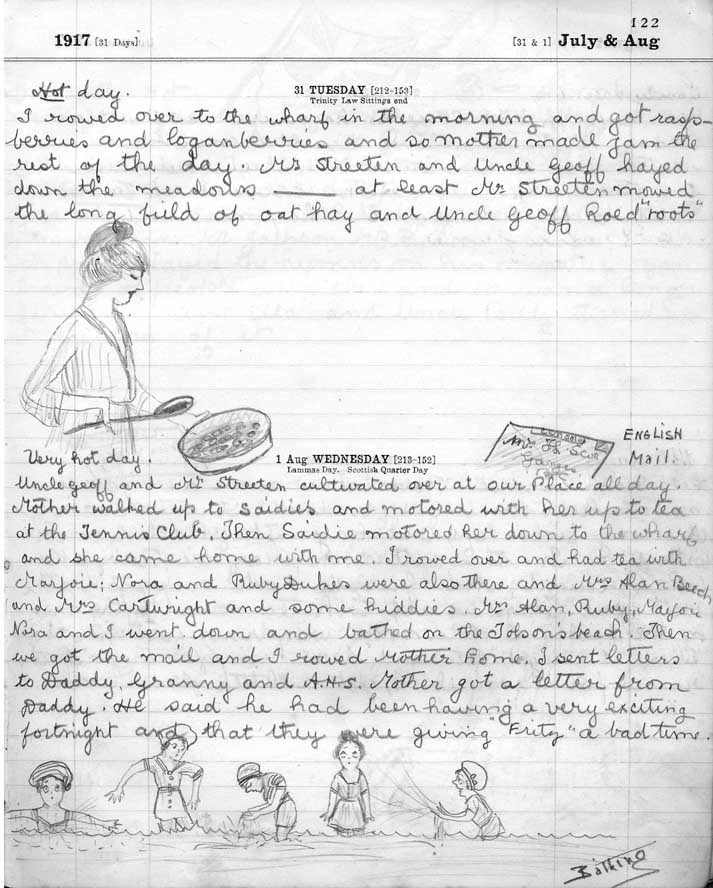 122
1917 [31 Days] [31 & 1] July & Aug
Hot day.
31 TUESDAY [212-153]
Trinity Law Sittings end
I rowed over to the wharf in the morning and got rasp-
berries and loganberries and so mother made jam the
rest of the day. Mr Streeten and Uncle Geoff hayed
down the meadows —— at least Mr Streeten mowed
the long field of oat hay and Uncle Geoff hoed "roots"
ENGLISH
Mail.
Mrs H. Scott
Very hot day.
1 Aug WEDNESDAY [213-152]
Lammas Day. Scottish Quarter Day
Uncle Geoff and Mr Streeten cultivated over at our Place all day.
Mother walked up to Saidie's and motored with her up to tea
at the Tennis Club. Then Saidie motored her down to the wharf
and she came home with me. I rowed over and had tea with
Marjoie; Nora and Ruby Dukes were also there and Mrs Alan Beech
and Mrs Cartwright and some kiddies. Mrs Alan, Ruby, Marjoie
Nora and I went down and bathed on the Tolson's beach. Then
we got the mail and I rowed Mother home. I sent letters
to Daddy, Granny and A.H.S. Mother got a letter from
Daddy. He said he had been having a very exciting
fortnight and that they were giving "Fritz" a bad time.
Bathing